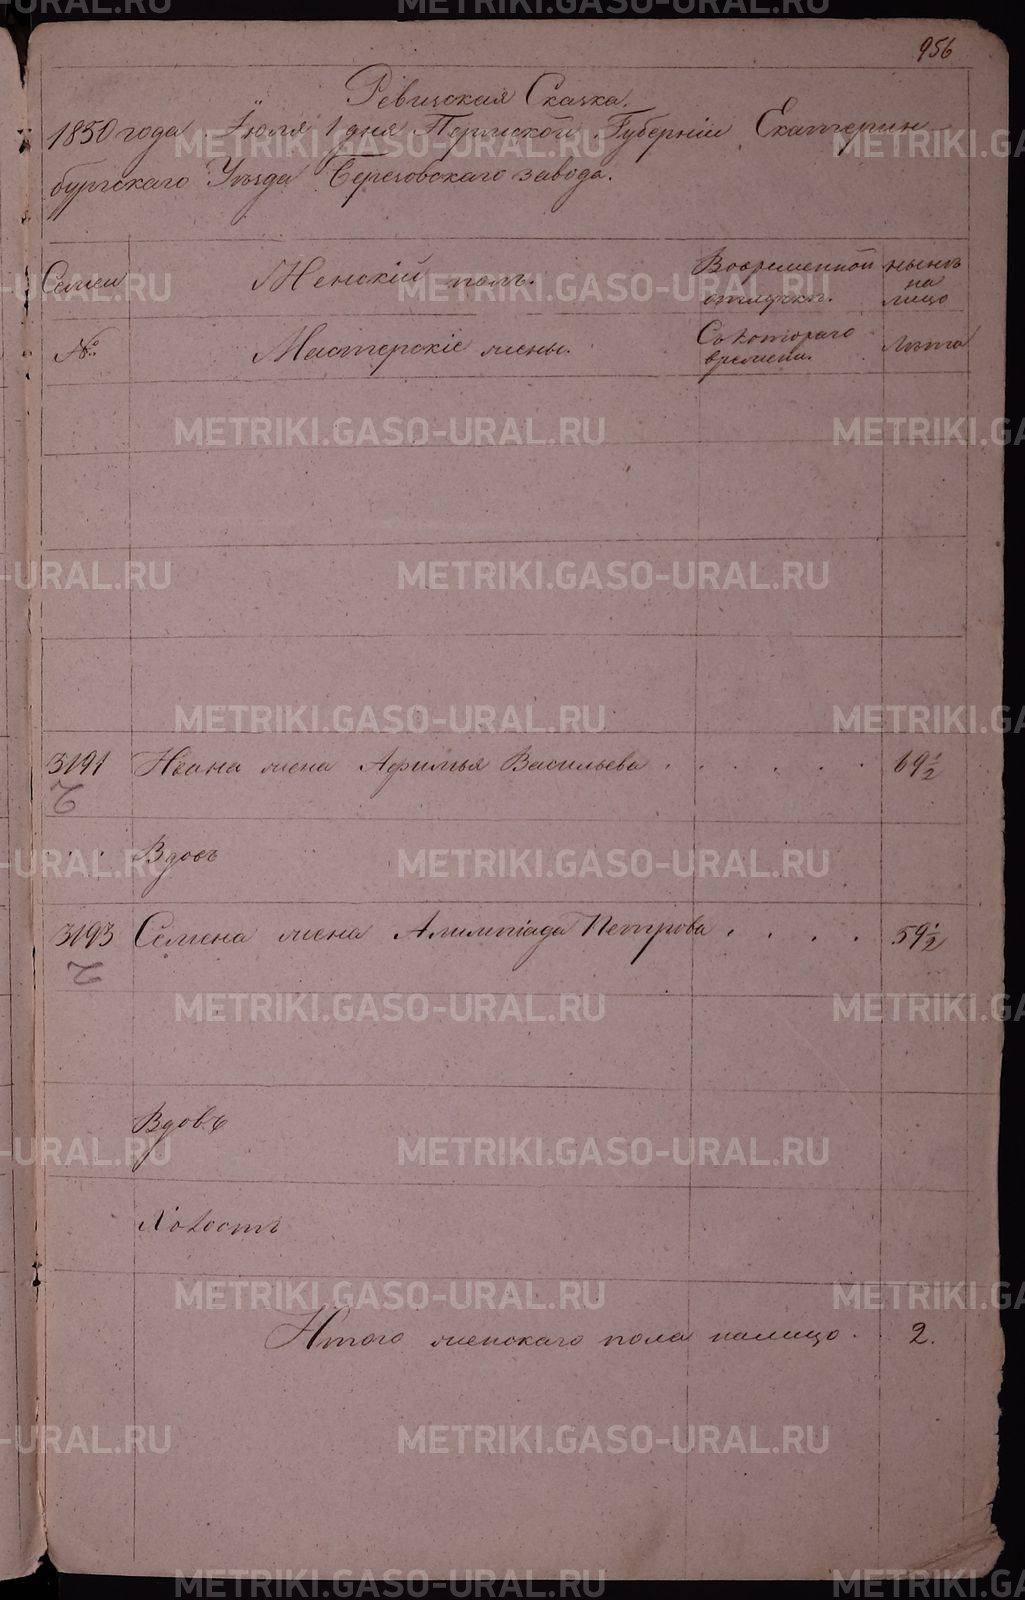 956
Ревизская Сказка.
1850 года Іюля 1 дня Пермской Губерніи Екатерин
бургскаго Уѣзда Березовскаго завода.
Семьи Женскій полъ. Вовременной отлучкѣ. нынѣ на лицо
№ Мастерскіе жены. Съ котораго времени. лѣта
3191 Ивана жена Афимья Васильева . . . . . 69 1/2
Вдовъ
3193 Семена жена Алимпіада Петрова . . . . 59 1/2
Вдовъ
Холостъ
Итого женскаго пола налицо . . 2.
METRIKI.GASO-URAL.RU